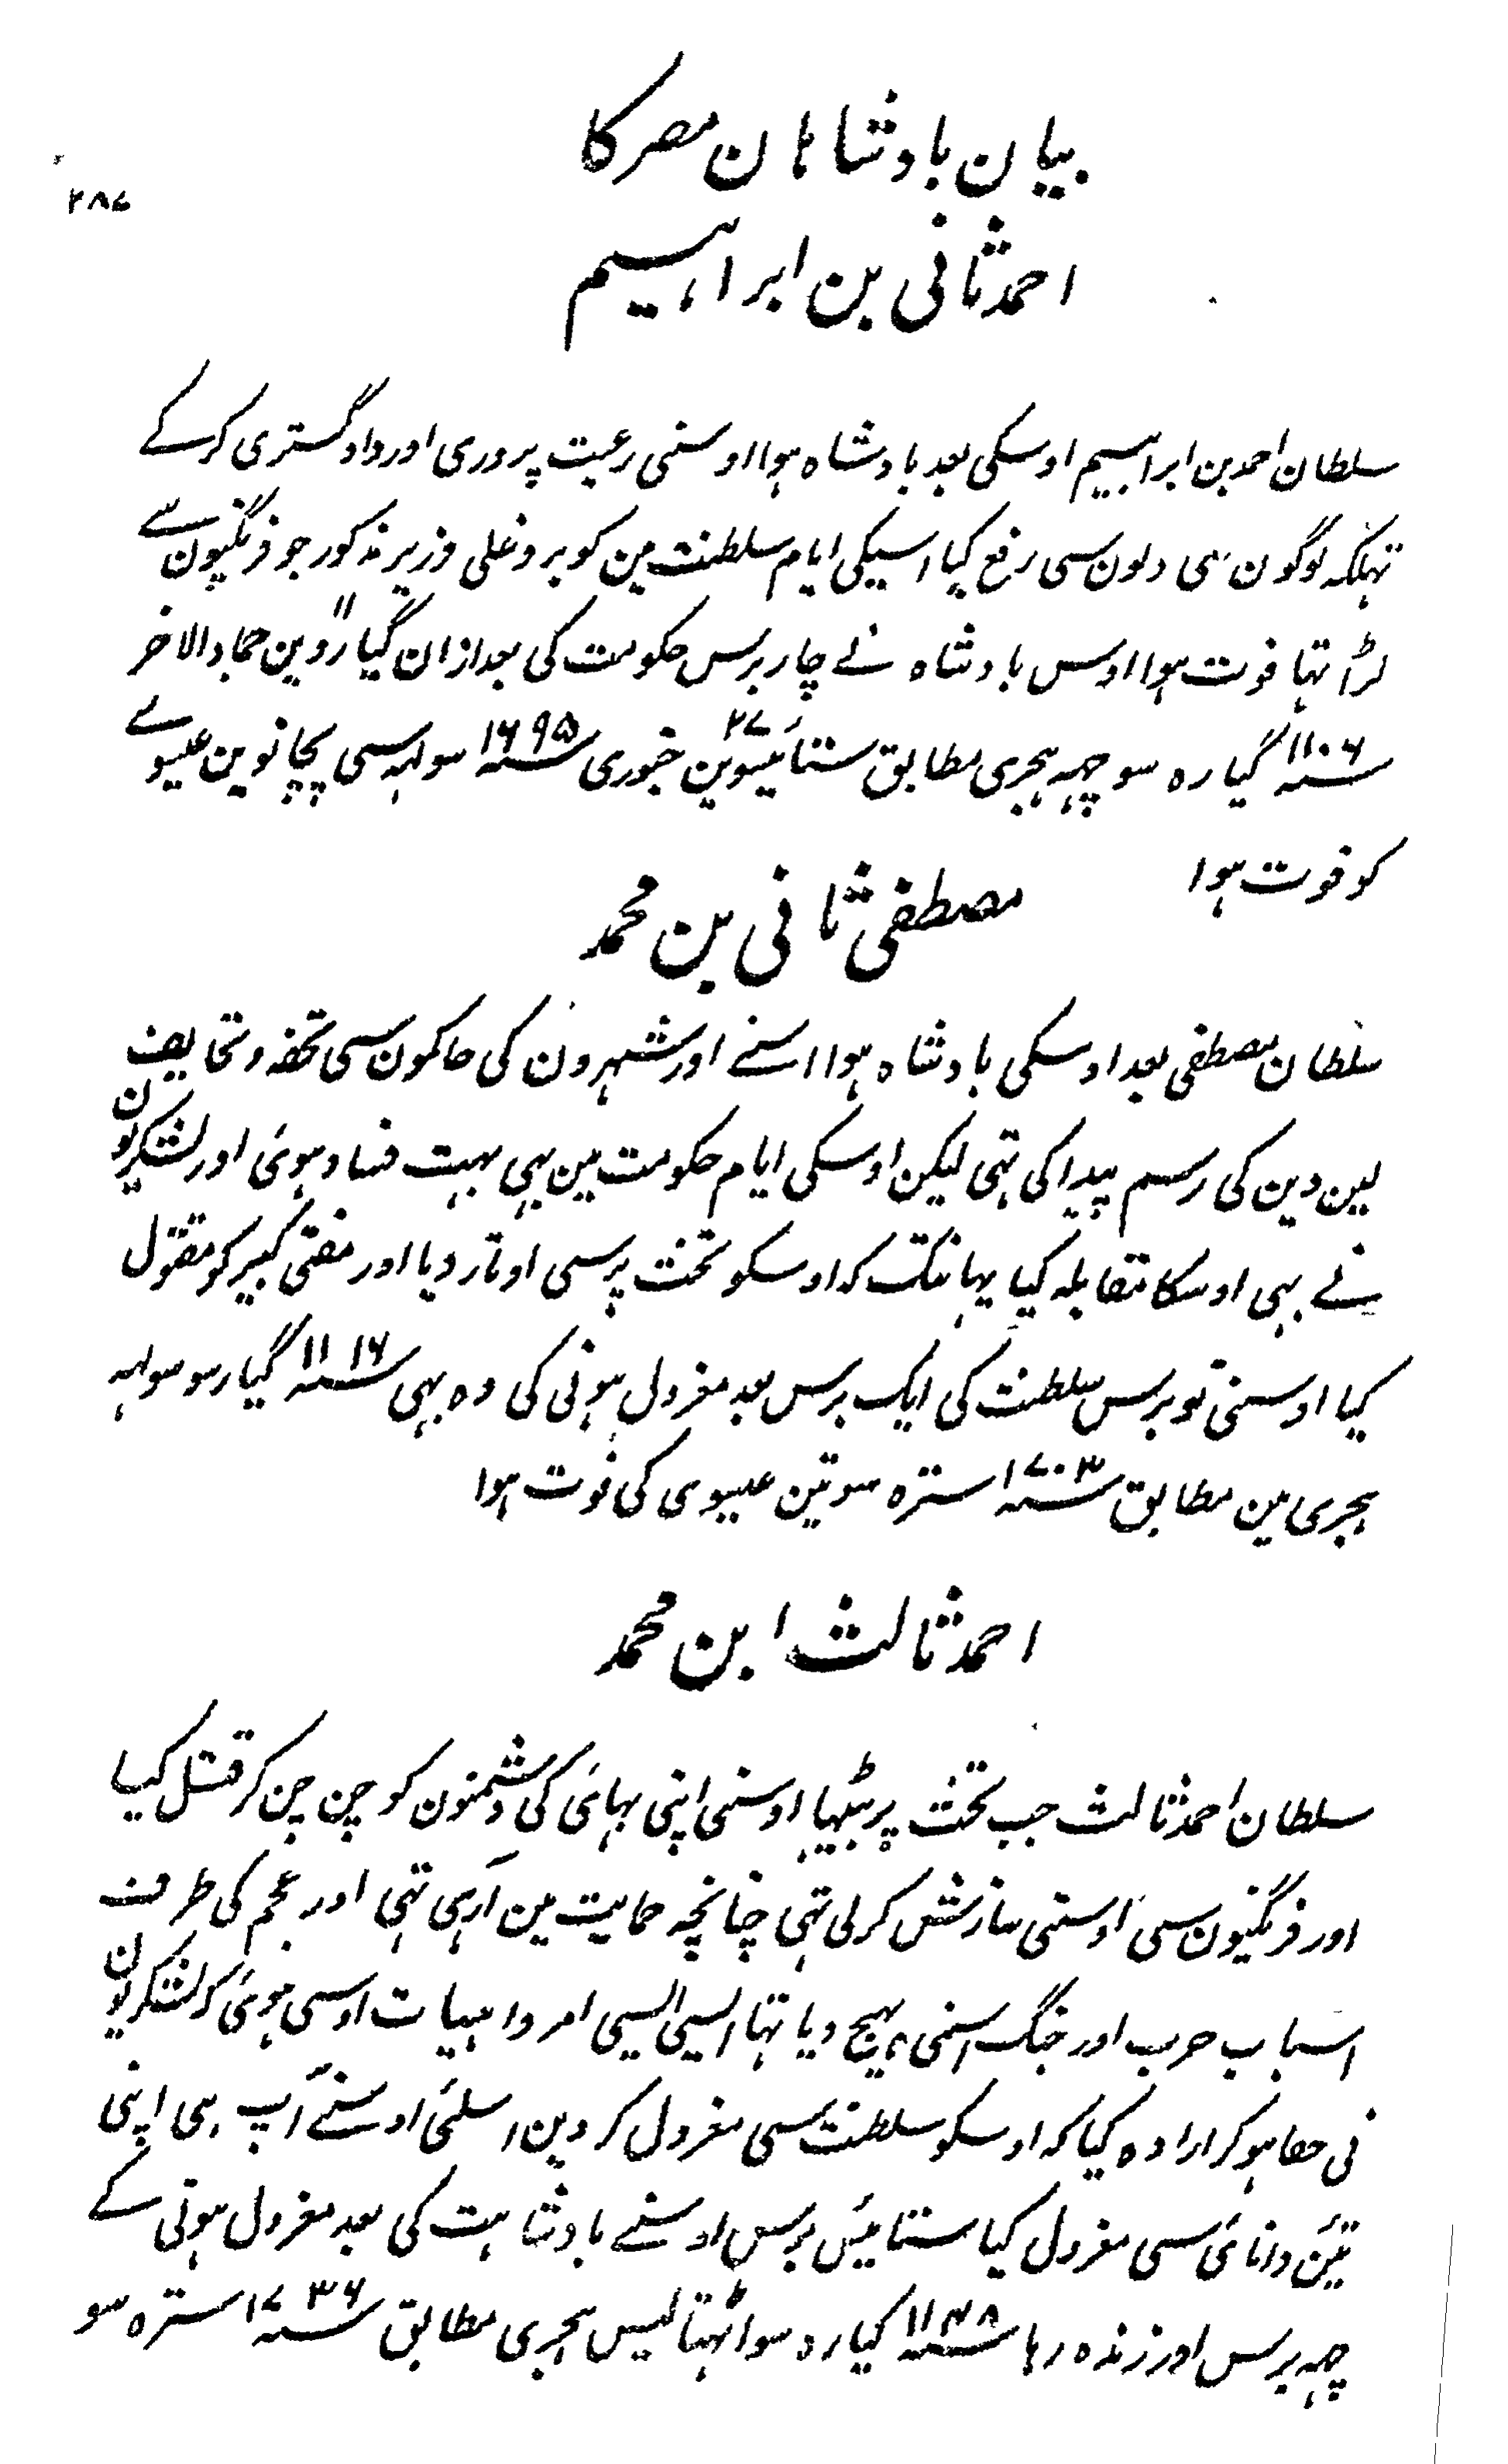 بیان بادشاہان مصر کا
۲۸۷
احمد ثانی بن ابراہیم
سلطان احمد بن ابراہیم اوسکی بعد بادشاہ ہوا اوسنی رعیت پروری اور دادگستری کرکے
تہلکہ لوگون کی دلون سی رفع کیا اسیکی ایام سلطنت مین کوپروغلی وزیر مذکور جو فرنگیون سے
لڑا تہا فوت ہوا اوس بادشاہ نے چار برس حکومت کی بعد ازان گیارہوین ۱۱ جماد الاخر
سنہ ۱۱۰۶ گیارہ سو چہہ ہجری مطابق ستائیسوین ۲۷ جنوری سنہ ۱۶۹۵ سولہہ سی پچانوین عیسوے
کو فوت ہوا
مصطفی ثانی بن محمد
سلطان مصطفی بعد اوسکی بادشاہ ہوا اسنے اور شہرون کی حاکمون سی تحفہ و تحایف
لین دین کی رسم پیدا کی تہی لیکن اوسکی ایام حکومت مین بہی بہت فساد ہوئی اور لشکریون
نے بہی اوسکا مقابلہ کیا یہانتک کہ اوسکو تخت پر سی اوتار دیا اور مفتی کبیر کو مقتول
کیا اوسنی نو برس سلطنت کی ایک برس بعد معزول ہونی کی وہ بہی سنہ ۱۱۱۶ گیارسو سولہہ
ہجری مین مطابق سنہ ۱۷۰۳ سترہ سو تین عیسوی کی فوت ہوا
احمد ثالث ابن محمد
سلطان احمد ثالث جب تخت پر بیٹہا اوسنی اپنی بہائی کی دشمنون کو چن چن کر قتل کیا
اور فرنگیون سی اوسنی سازش کرلی تہی چنانچہ حمایت مین آرہی تہی اور عجم کی طرف
اسباب حرب اور جنگ اسنی بہیج دیا تہا ایسی ایسی امر واہیات اوسی ہوئی کہ لشکریون
نی خفا ہو کر ارادہ کیا کہ اوسکو سلطنت سی معزول کر دین اسلئی اوسنے آپ ہی اپنی
تئین دانائی سی معزول کیا ستائیس برس اوسنے بادشاہت کی بعد معزول ہونی کے
چہہ برس اور زندہ رہا سنہ ۱۱۴۸ گیارہ سو اٹہتالیس ہجری مطابق سنہ ۱۷۳۶ سترہ سو